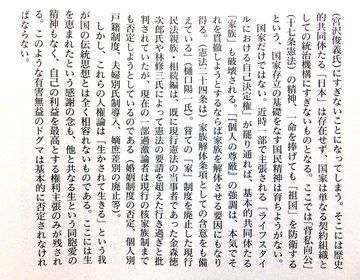 (宮沢俊義氏)にすぎないことになってしまう。そこには歴史
的共同体たる「日本」は存在せず、国家は単なる契約機関と
しての統治機構にすぎないものとなる。ここでは「背私向公」
(十七条憲法)の精神、一命を捧げても「祖国」を防衛する
という国家存立の基礎をなす国民精神は育ちようがない。
国家だけではない。近時、部で主張される「ライフスタイ
ルにおける自己決定権」が罷り通れば、基本的共同体たる
「家族」も破壊される。「「個人の尊厳」の強調は、本気でそ
れを貫徹しようとするならば家族を解体させる要因にもなり
得る。(憲法二十四条は)家族解体条項としての含意をも備
えている」(樋口陽一氏)。嘗ての「家」制度を廃止した現行
民法親族・相続編は、既に現行憲法の当事者であった金森徳
次郎氏や林修三氏によって憲法の要請を超えた行き過ぎと批
判されていたが、現在の一部過激論者は現行の核家族制まで
否定しようとしているのである(婚姻制度の否定、個人別
戸籍制度、夫婦別氏制導入、嫡庶差別の廃止等)。
しかし、これらの人権論は「生かされて生きる」という我
が国の伝統思想とは全く相容れないものである。ここには生
を恵まれたという感謝の念も、他と共なる生という同胞愛の
精神もなく、自己の利益を最高とする権利主張のみが残され
る。このような有害無益のドグマは基本的に否定されなけれ
ばならない。